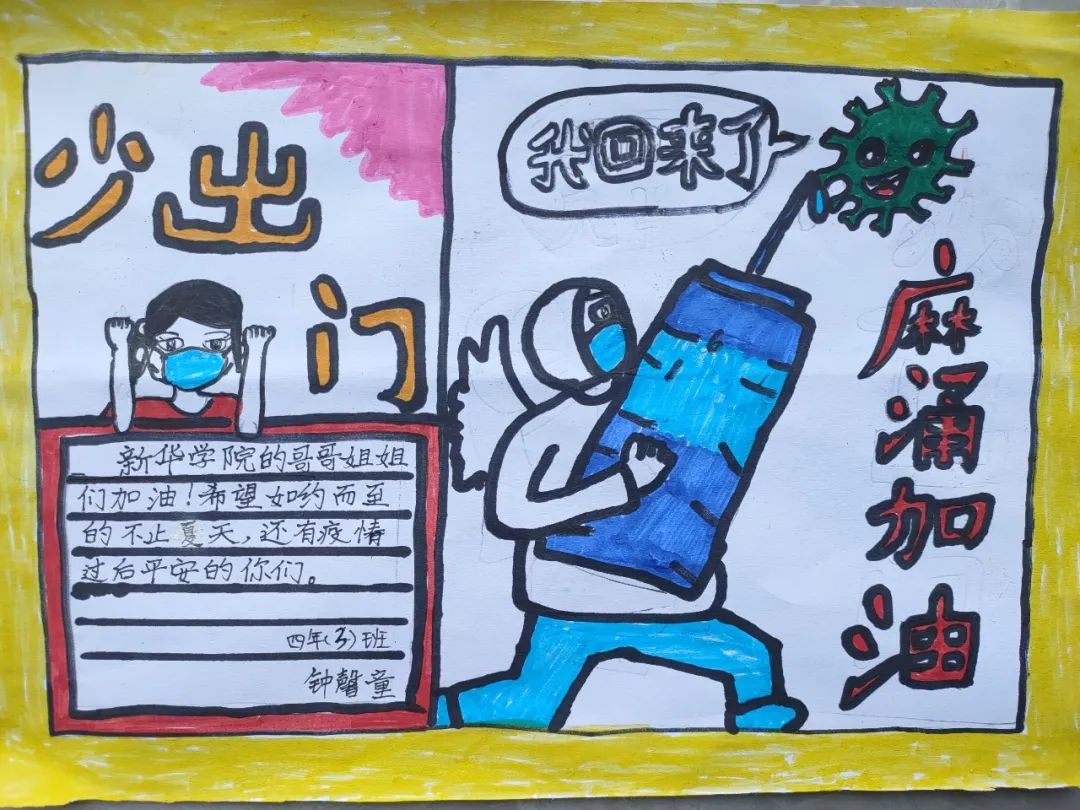 少出
门
新华学院的哥哥姐姐
们加油！希望如约而至
的不止夏天，还有疫情
过后平安的你们。
四年(3)班
钟馨童
我回来了
麻涌加油